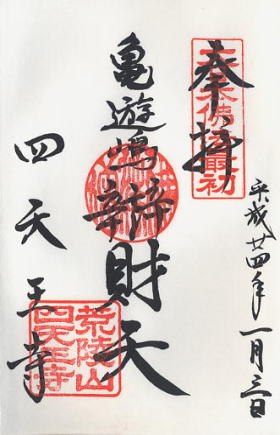 奉拝
大日本佛法最初
平成廿四年一月三日
亀遊嶋辯財天
四天王寺
荒陵山
四天王寺